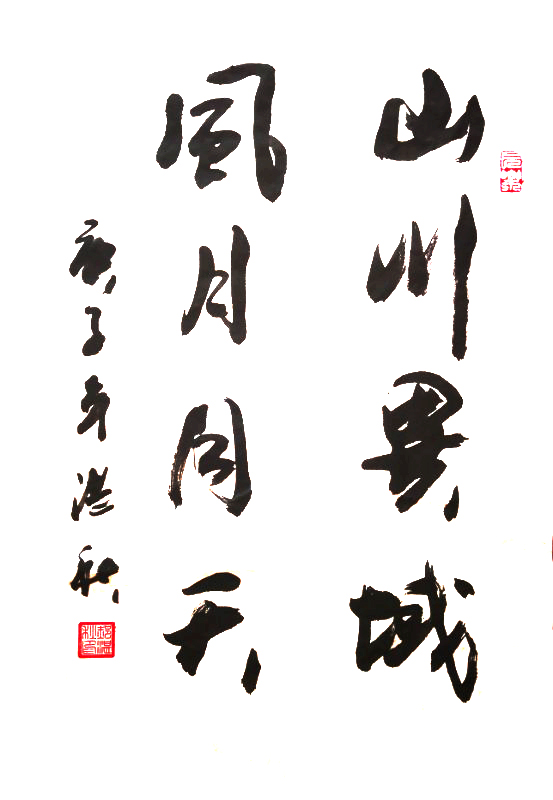 山川異域
風月同天
庚子年浩秋